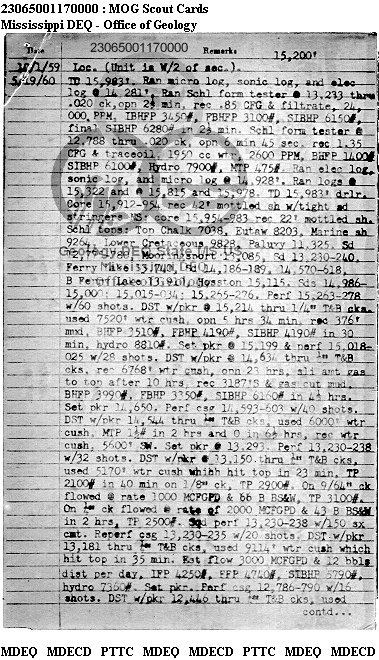 23065001170000 : MOG Scout Cards
Mississippi DEQ - Office of Geology
Date 23065001170000 Remarks 15,200'
/1/59 Loc. (Unit is W/2 of sec.).
5/19/60 TD 15,983'. Ran micro log, sonic log, and elec
log @ 14,281'. Ran Schl form tester @ 13,233 thru
.020 ck, opn 2½ min, rec .85 CFG & filtrate, 24,
000 PPM, IBHFP 3450#, FBHFP 3100#, SIBHP 6150#,
final SIBHP 6280# in 2½ min. Schl form tester @
12,788 thru .020 ck, opn 6 min 45 sec, rec 1.35
CFG & trace oil, 1950 cc wtr, 2600 PPM, BHFP 1400#
SIBHP 6100#, Hydro 7900#, MTP 475#. Ran elec log,
sonic log, and micro log @ 14,928'. Ran logs @
15,322 and @ 15,815 and 15,978. TD 15,983' drlr.
Core 15,912-954, rec 42' mottled sh w/tight sd
stringers NS: core 15,954-983 rec 22' mottled sh.
Schl tops: Top Chalk 7038, Eutaw 8203, Marine sh
9264, Lower Cretaceous 9828, Paluxy 11,325. Sd
12,771-788, Mooringsport 13,085, Sd 13,230-240,
Ferry Lake 13,740, Sd 14,186-189, 14,570-618,
B Ferry Lake 13,910, Hosston 15,115. Sds 14,986-
15,000; 15,015-034; 15,265-276. Perf 15,263-278
w/60 shots. DST w/pkr @ 15,214 thru 1/4" T&B ck,
used 7520' wtr cush, opn 5 hrs 34 min, rec 376'
mud, BHFP 3510#, FBHP 4190#, SIBHP 4190# in 30
min, hydro 8810#. Set pkr @ 15,199 & perf 15,018-
025 w/28 shots. DST w/pkr @ 14,634 thru ¼" T&B
cks, rec 6768' wtr cush, opn 23 hrs, sli amt gas
to top after 10 hrs, rec 3187'S & gas cut mud,
BHFP 3990#, FBHP 3350#, SIBHP 6160# in 4½ hrs.
Set pkr 14,650. Perf csg 14,593-603 w/40 shots.
DST w/pkr 14,544 thru ¼" T&B cks, used 6000' wtr
cush, MTP 1½# in 2 hrs and 0 in 6½ hrs, rec wtr
cush, 5600' SW. Set pkr @ 13,293. Perf 13,230-238
w/32 shots. DST w/pkr @ 13,150 thru ¼" T&B cks,
used 5170' wtr cush whibh hit top in 23 min, TP
2100# in 40 min on 1/8" ck, TP 2900#. On 9/64" ck
flowed @ rate 1000 MCFGPD & 66 B BS&W, TP 3100#.
On ¼" ck flowed @ rate of 2000 MCFGPD & 43 B BS&W
in 2 hrs, TP 2500#. Sqd perf 13,230-238 w/150 sx
cmt. Reperf csg 13,230-235 w/20 shots. DST w/pkr
13,181 thru ¼" T&B cks, used 9114' wtr cush which
hit top in 35 min. Est flow 3000 MCFGPD & 12 bbls
dist per day, IFP 4250#, FFP 4740#, SIBHP 5790#,
hydro 7360#. Set pkr. Perf csg 12,786-790 w/16
shots. DST w/pkr 12,446 thru ¼" T&B cks, used
contd...
MDEQ MDECD PTTC MDEQ MDECD PTTC MDEQ MDECD